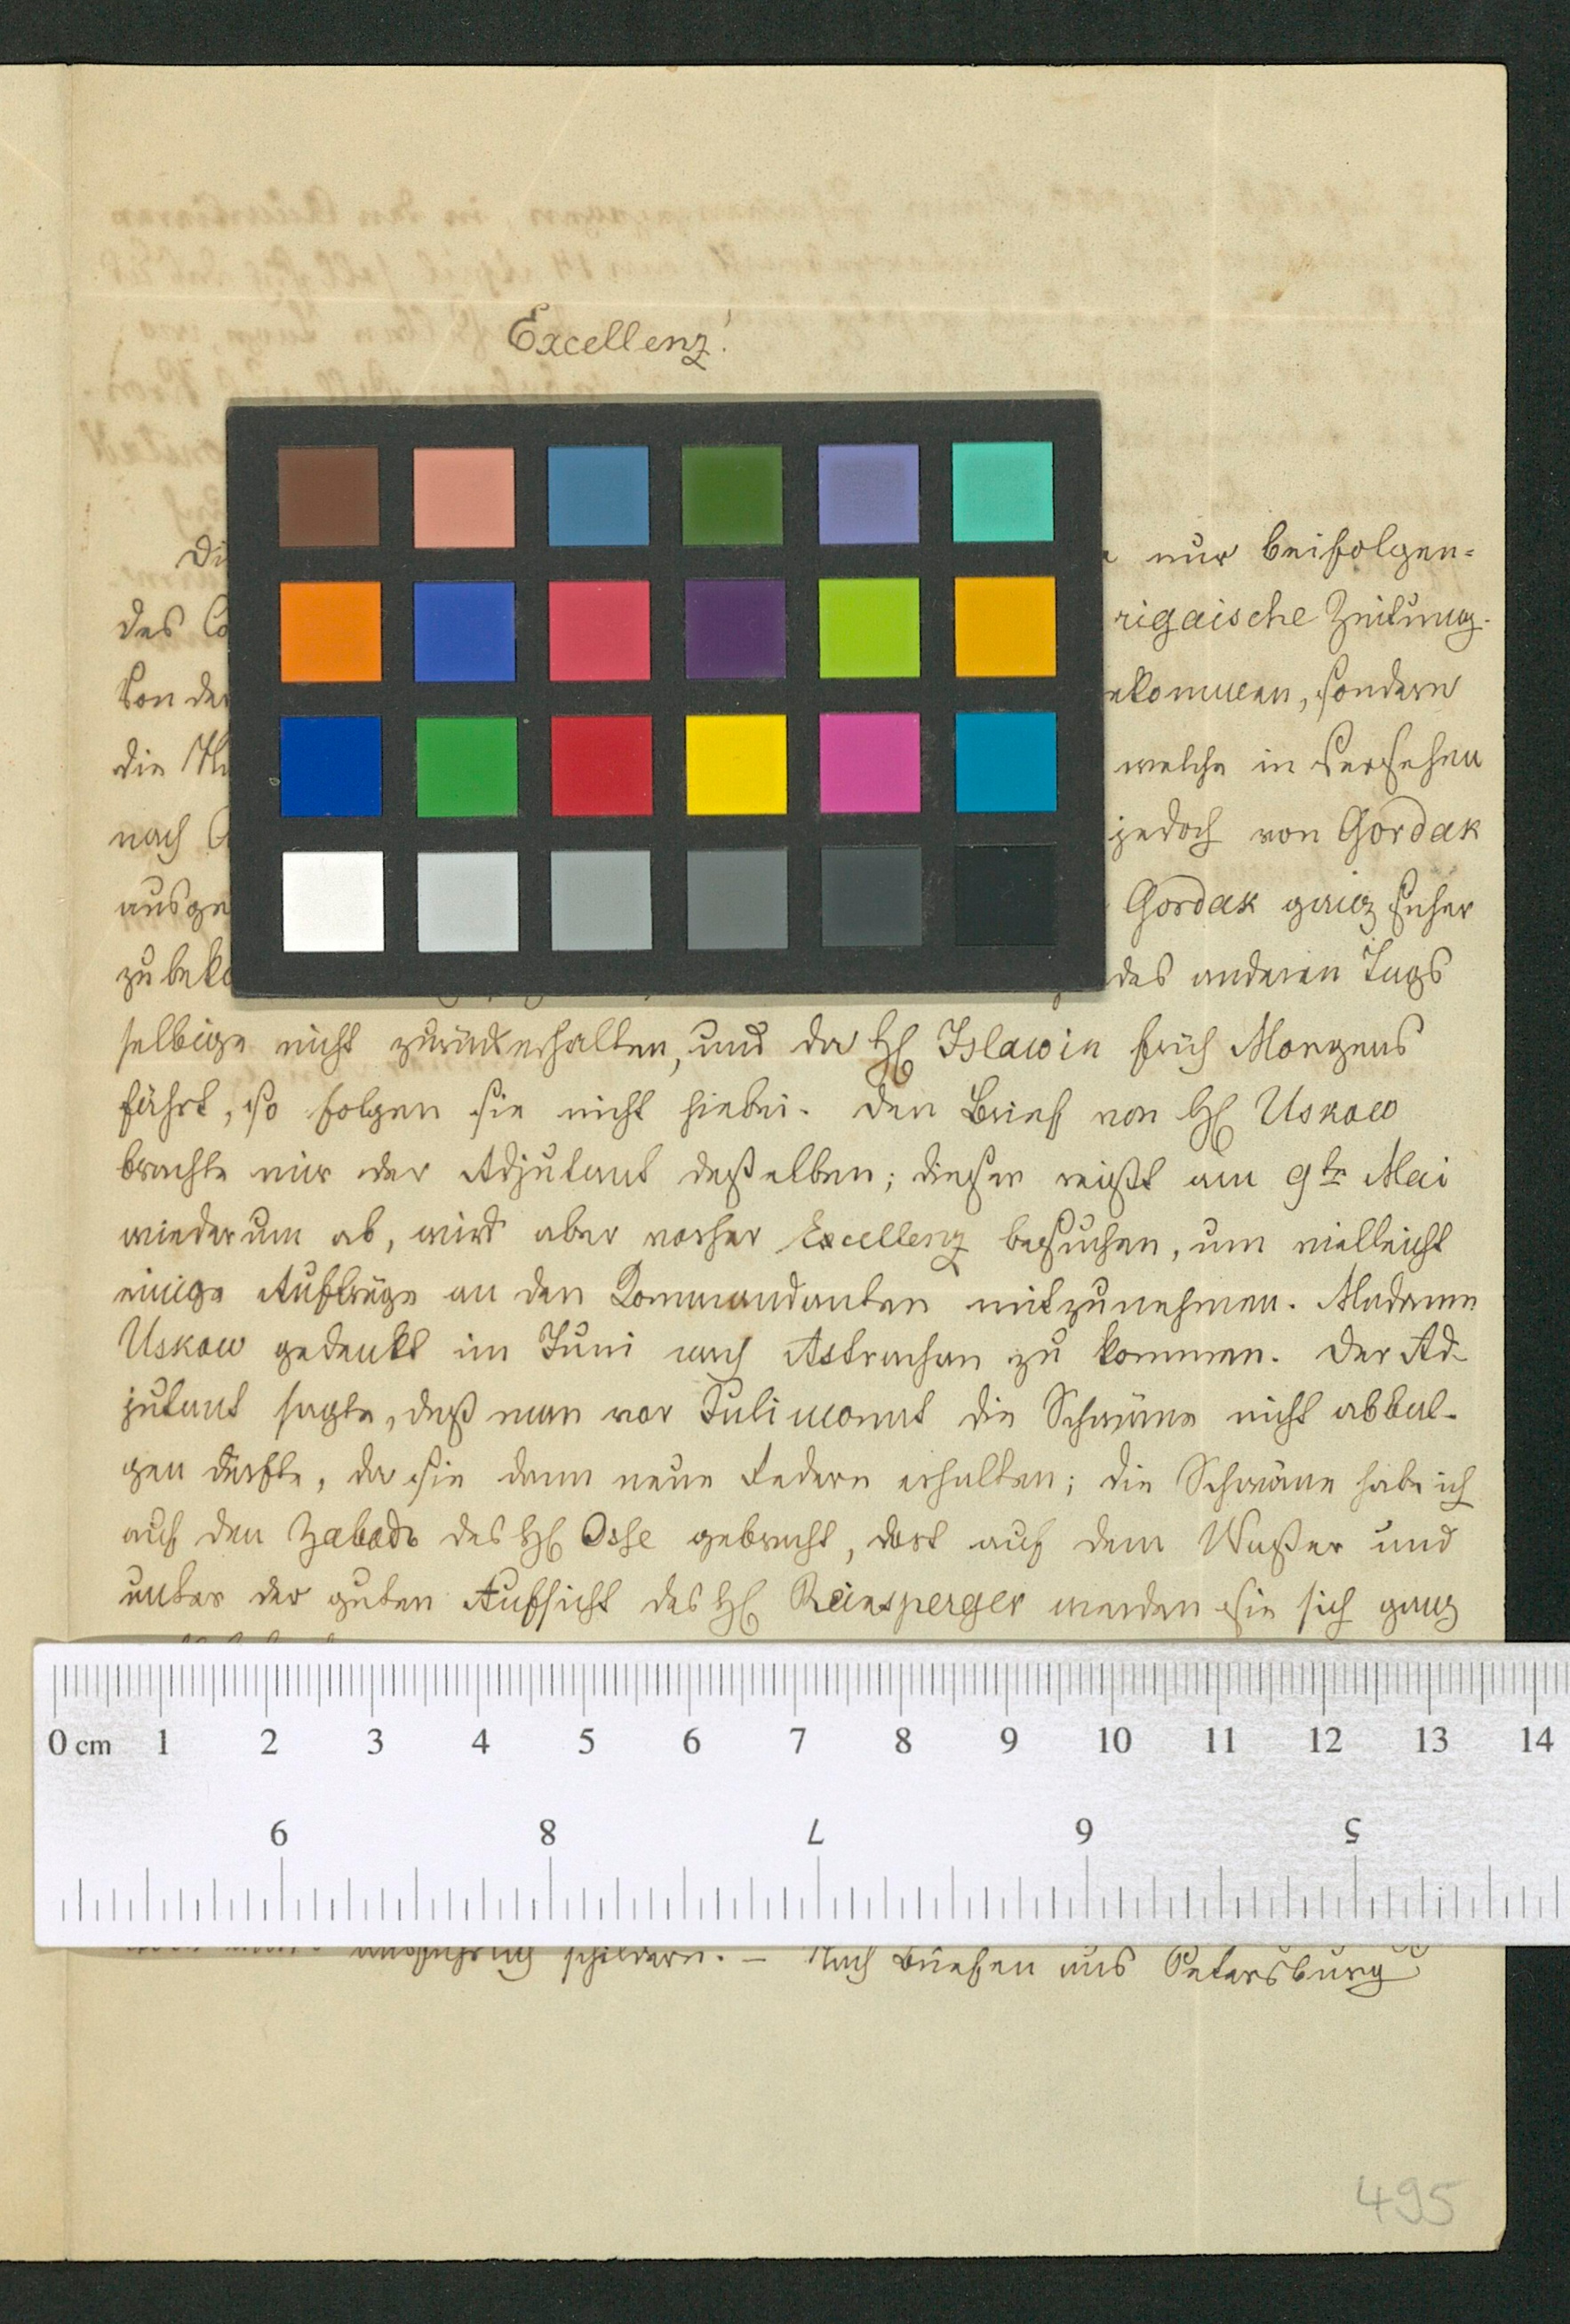 Excellenz!
nur beifolgen=
des rigaische Zeitung.
Von der sondern
die welche in Versehen
nach jedoch von Gordak
ausge Gordak ganz sicher
zu beko des anderen Tags
selbige nicht zurückerhalten, und da H Islawin früh Morgens
fährt, so folgen sie nicht hiebei. Den Brief von H Uskow
brachte mir der Adjutant deßelben; dieser reißt am 9te Mai
wiederum ab, wird aber vorher Excellenz besuchen, um vielleicht
einige Aufträge an den Commandanten mitzunehmen. Madamm
Uskow gedenkt im Juni nach Astrachan zu kommen. Der Ad-
jutant sagte, daß man vor Julimonat die Schwäne nicht abbal-
gen dürfte, da sie dann neue Federn erhalten; die Schwäne habe ich
auf den des H Osse gebracht, dort auf dem Waßer und
unter der guten Aufsicht des H Reinsperger werden sie sich ganz
0 cm 1 2 3 4 5 6 7 8 9 10 11 12 13 14
9 8 7 6 5
ausführlich schildern. – Nach Briefen aus Petersburg
495